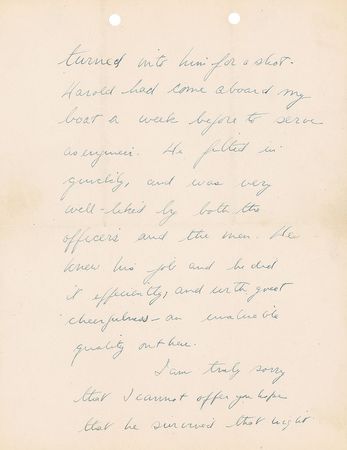 turned into him for a shot.
Harold had come aboard my
boat a week before to serve
as engineer. He fitted in
quickly, and was very
well-liked by both the
officers and the men. He
knew his job and he did
it efficiently, and with great
cheerfulness — an invaluable
quality out here.
I am truly sorry
that I cannot offer you hope
that he survived that night